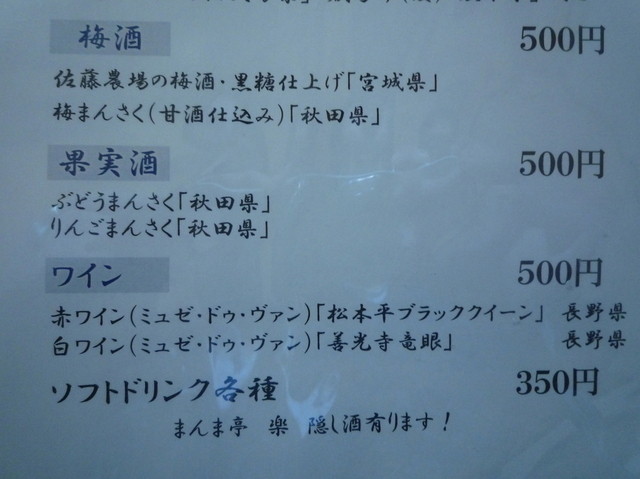 梅酒 500円
佐藤農場の梅酒・黒糖仕上げ「宮城県」
梅まんさく(甘酒仕込み)「秋田県」
果実酒 500円
ぶどうまんさく「秋田県」
りんごまんさく「秋田県」
ワイン 500円
赤ワイン(ミュゼ・ドゥ・ヴァン)「松本平ブラッククイーン」 長野県
白ワイン(ミュゼ・ドゥ・ヴァン)「善光寺竜眼」 長野県
ソフトドリンク各種 350円
まんま亭 楽 隠し酒有ります!